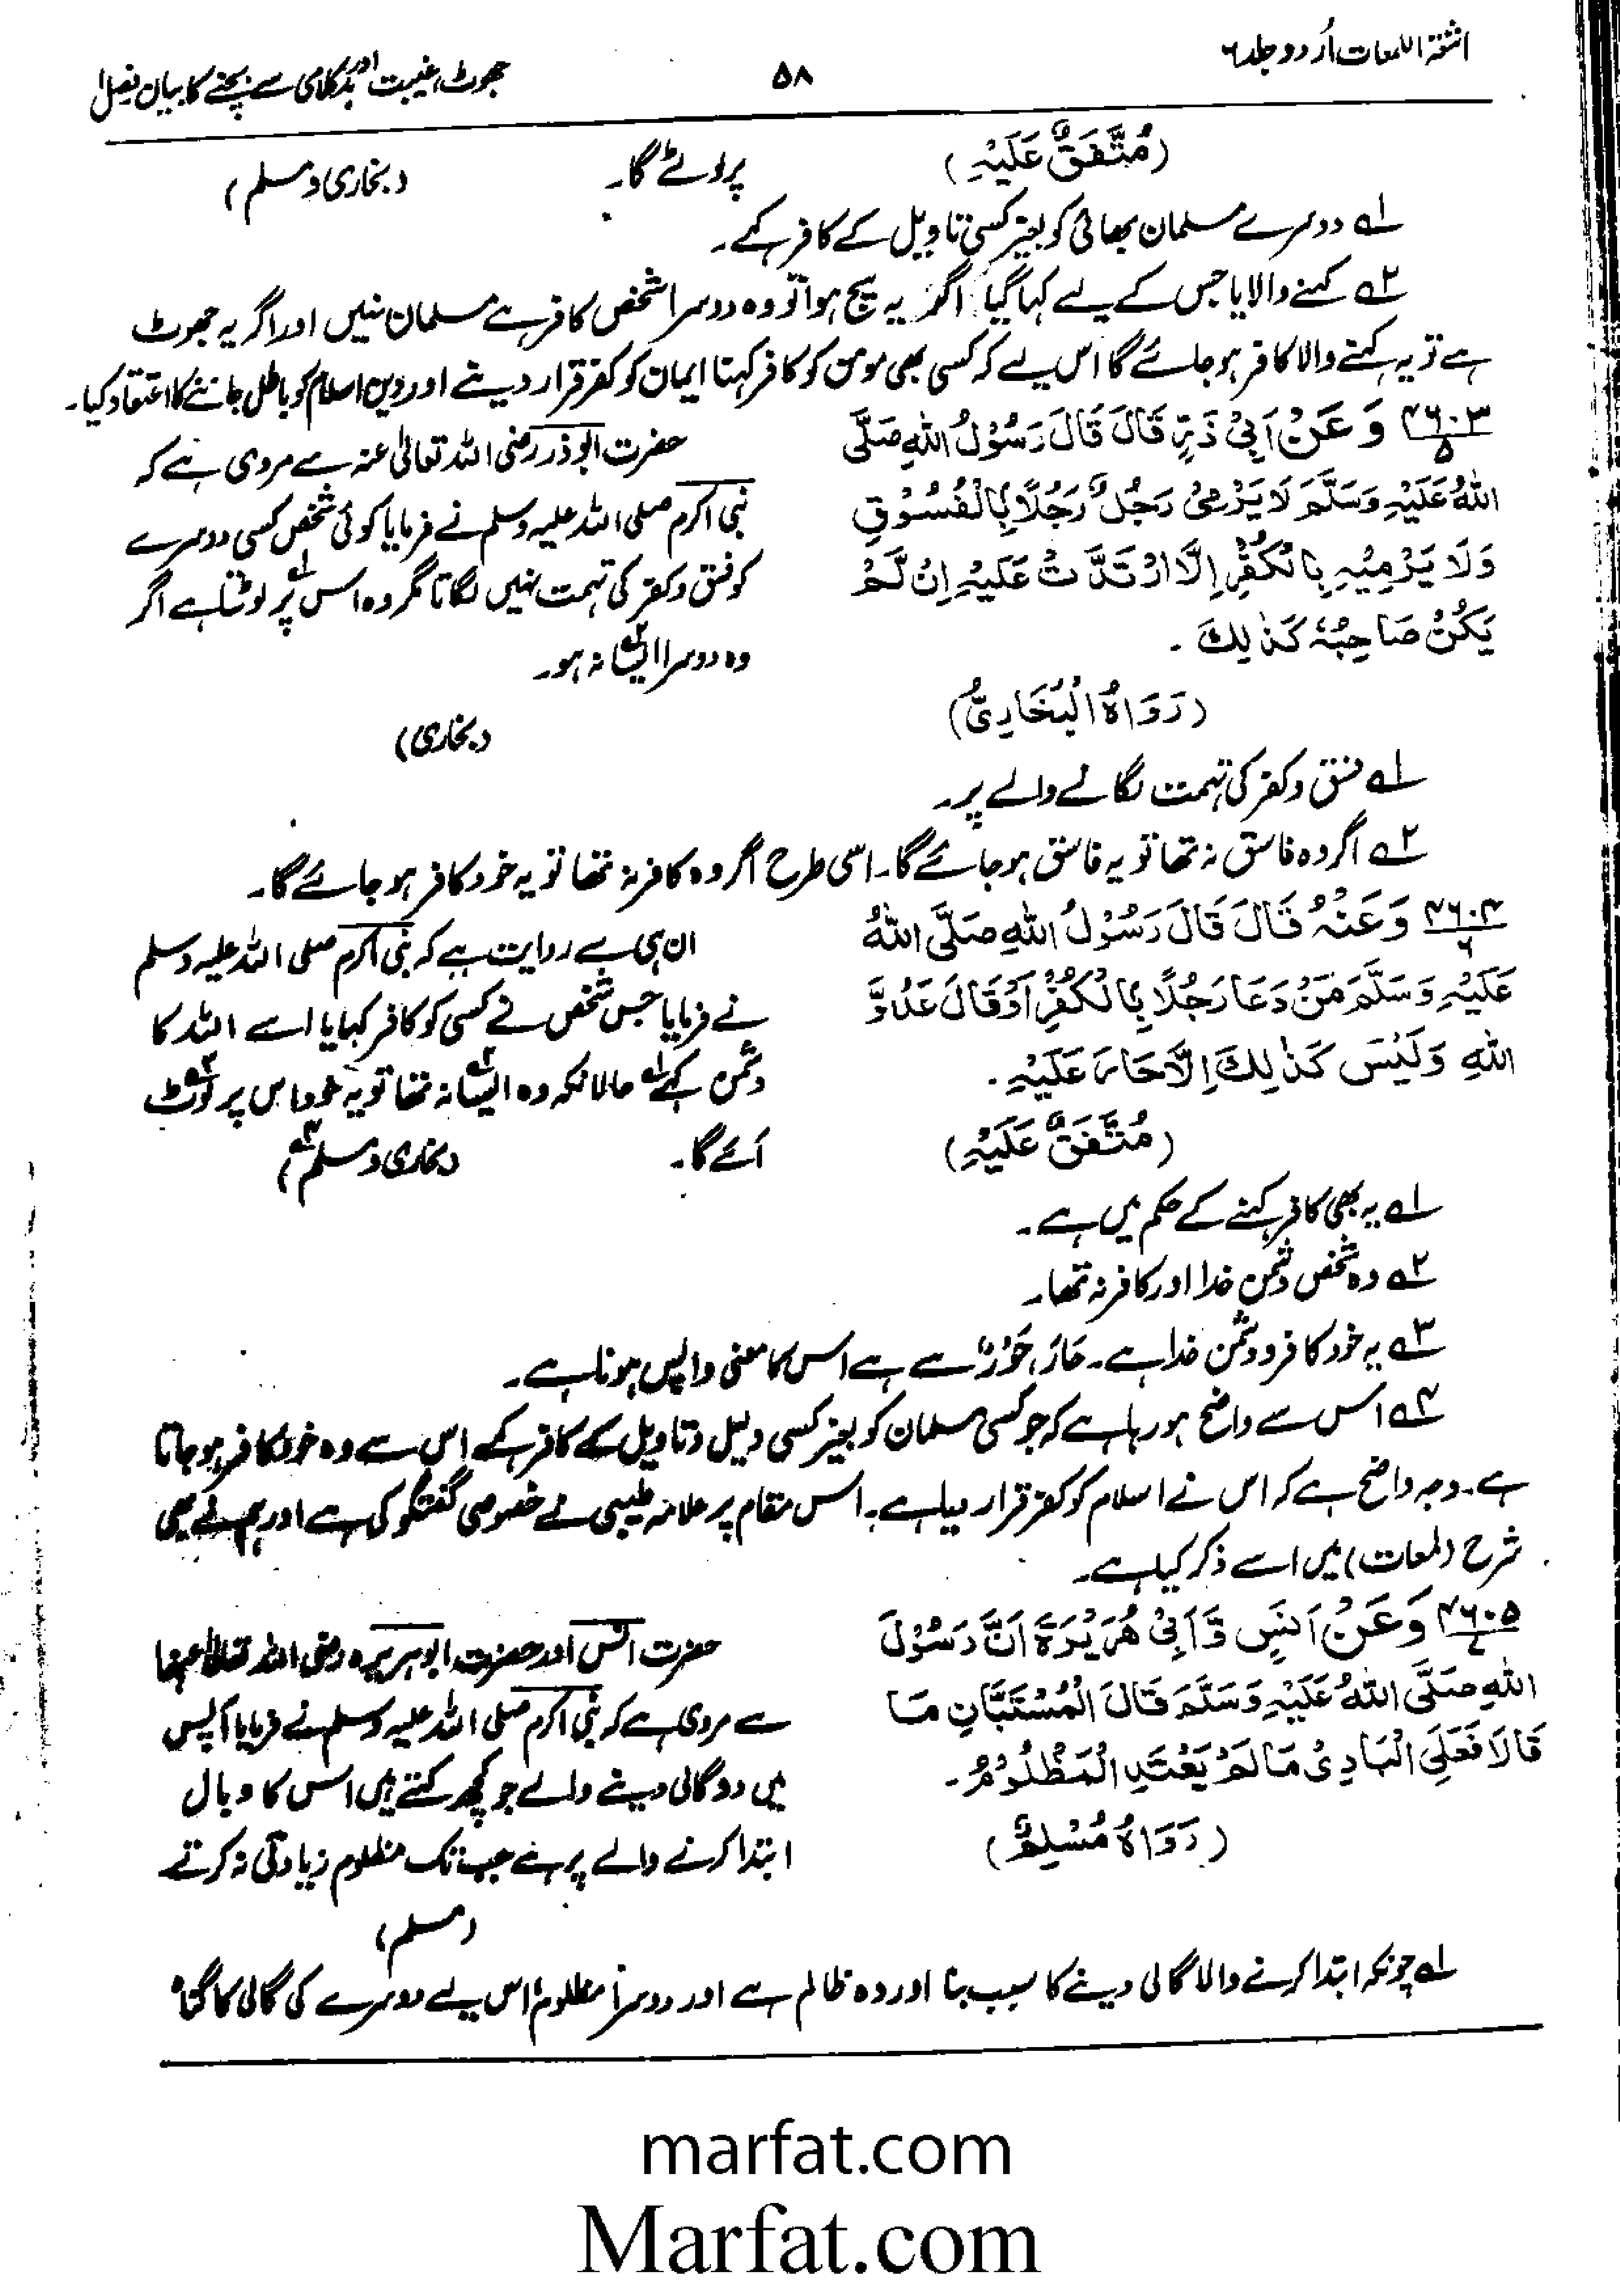 اشعۃ اللمعات اُردو جلد ۶
۵۸
جھوٹ، غیبت اور بدکلامی سے بچنے کا بیان فصل ا
(مُتَّفَقٌ عَلَيْهِ)
پر لوٹے گا۔ (بخاری و مسلم)
۱ے دوسرے مسلمان بھائی کو بغیر کسی تاویل کے کافر کہے۔
۲ے کہنے والا یا جس کے لیے کہا گیا اگر یہ سچ ہوا تو وہ دوسرا شخص کافر ہے مسلمان نہیں اور اگر یہ جھوٹ
ہے تو یہ کہنے والا کافر ہو جائے گا اس لیے کہ کسی بھی مومن کو کافر کہنا ایمان کو کفر قرار دینے اور دین اسلام کو باطل جاننے کا اعتقاد کیا۔
۴۶۰۳/۵ وَعَنْ اَبِيْ ذَرٍّ قَالَ قَالَ رَسُوْلُ اللهِ صَلَّى
اللهُ عَلَيْهِ وَسَلَّمَ لَا يَرْمِيْ رَجُلٌ رَجُلًا بِالْفُسُوْقِ
وَلَا يَرْمِيْهِ بِالْكُفْرِ اِلَّا ارْتَدَّتْ عَلَيْهِ اِنْ لَّمْ
يَكُنْ صَاحِبُهٗ كَذٰلِكَ۔
(رَوَاهُ الْبُخَارِيُّ)
حضرت ابوذر رضی اللہ تعالیٰ عنہ سے مروی ہے کہ
نبی اکرم صلی اللہ علیہ وسلم نے فرمایا کوئی شخص کسی دوسرے
کو فسق و کفر کی تہمت نہیں لگاتا مگر وہ اس پر لوٹتا ہے۱ے اگر
وہ دوسرا ایسا۲ے نہ ہو۔
(بخاری)
۱ے فسق و کفر کی تہمت لگانے والے پر۔
۲ے اگر وہ فاسق نہ تھا تو یہ فاسق ہو جائے گا۔ اسی طرح اگر وہ کافر نہ تھا تو یہ خود کافر ہو جائے گا۔
۴۶۰۴/۶ وَعَنْهُ قَالَ قَالَ رَسُوْلُ اللهِ صَلَّى اللهُ
عَلَيْهِ وَسَلَّمَ مَنْ دَعَا رَجُلًا بِالْكُفْرِ اَوْ قَالَ عَدُوَّ
اللهِ وَلَيْسَ كَذٰلِكَ اِلَّا حَارَ عَلَيْهِ۔
(مُتَّفَقٌ عَلَيْهِ)
ان ہی سے روایت ہے کہ نبی اکرم صلی اللہ علیہ وسلم
نے فرمایا جس شخص نے کسی کو کافر کہا یا اسے اللہ کا
دشمن کہے۱ے حالانکہ وہ ایسا۲ے نہ تھا تو یہ خود اس پر لوٹ۳ے
آئے گا۔ (بخاری و مسلم)۴ے
۱ے یہ بھی کافر کہنے کے حکم میں ہے۔
۲ے وہ شخص دشمن خدا اور کافر نہ تھا۔
۳ے یہ خود کافر و دشمن خدا ہے۔ حَارَ، حَوْرٌ سے ہے اس کا معنی واپس ہونا ہے۔
۴ے اس سے واضح ہو رہا ہے کہ جو کسی مسلمان کو بغیر کسی دلیل و تاویل کے کافر کہے اس سے وہ خود کافر ہو جاتا
ہے۔ وجہ واضح ہے کہ اس نے اسلام کو کفر قرار دیا ہے۔ اس مقام پر علامہ طیبی نے خصوصی گفتگو کی ہے اور ہم نے بھی
شرح (لمعات) میں اسے ذکر کیا ہے۔
۴۶۰۵/۷ وَعَنْ اَنَسٍ وَّاَبِيْ هُرَيْرَةَ اَنَّ رَسُوْلَ
اللهِ صَلَّى اللهُ عَلَيْهِ وَسَلَّمَ قَالَ الْمُسْتَبَّانِ مَا
قَالَا فَعَلَى الْبَادِيْ مَا لَمْ يَعْتَدِ الْمَظْلُوْمُ۔
(رَوَاهُ مُسْلِمٌ)
حضرت انس اور حضرت ابوہریرہ رضی اللہ تعالیٰ عنہما
سے مروی ہے کہ نبی اکرم صلی اللہ علیہ وسلم نے فرمایا آپس
میں دو گالی دینے والے جو کچھ کہتے ہیں اس کا وبال
ابتدا کرنے والے پر ہے جب تک مظلوم زیادتی نہ کرتے
(مسلم)
۱ے چونکہ ابتدا کرنے والا گالی دینے کا سبب بنا اور وہ ظالم ہے اور دوسرا مظلوم، اس لیے دوسرے کی گالی کا گناہ
marfat.com
Marfat.com